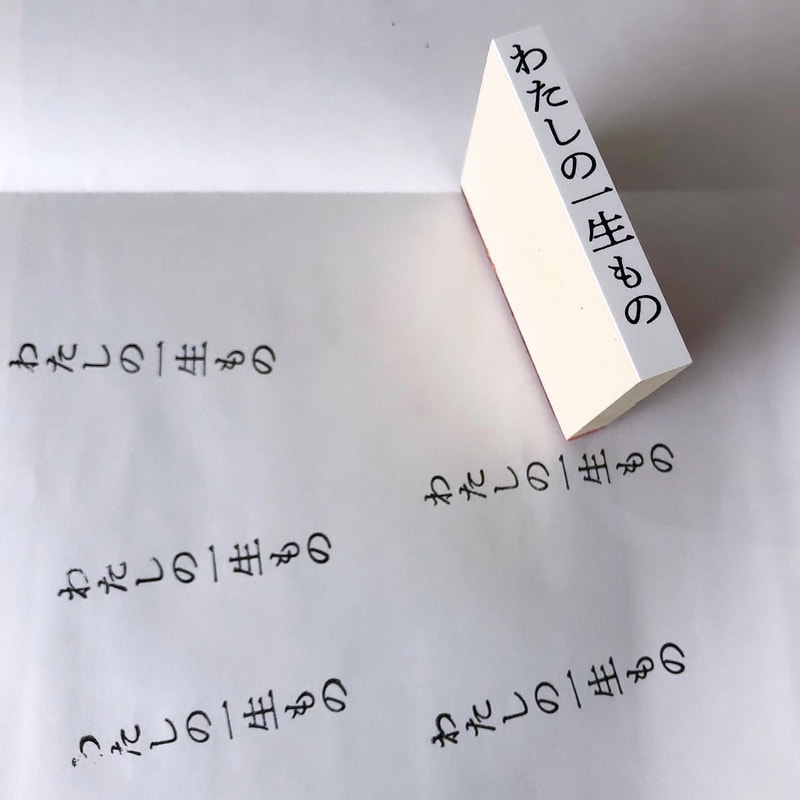 わたしの一生もの
わたしの一生もの
わたしの一生もの
わたしの一生もの
わたしの一生もの
わたしの一生もの